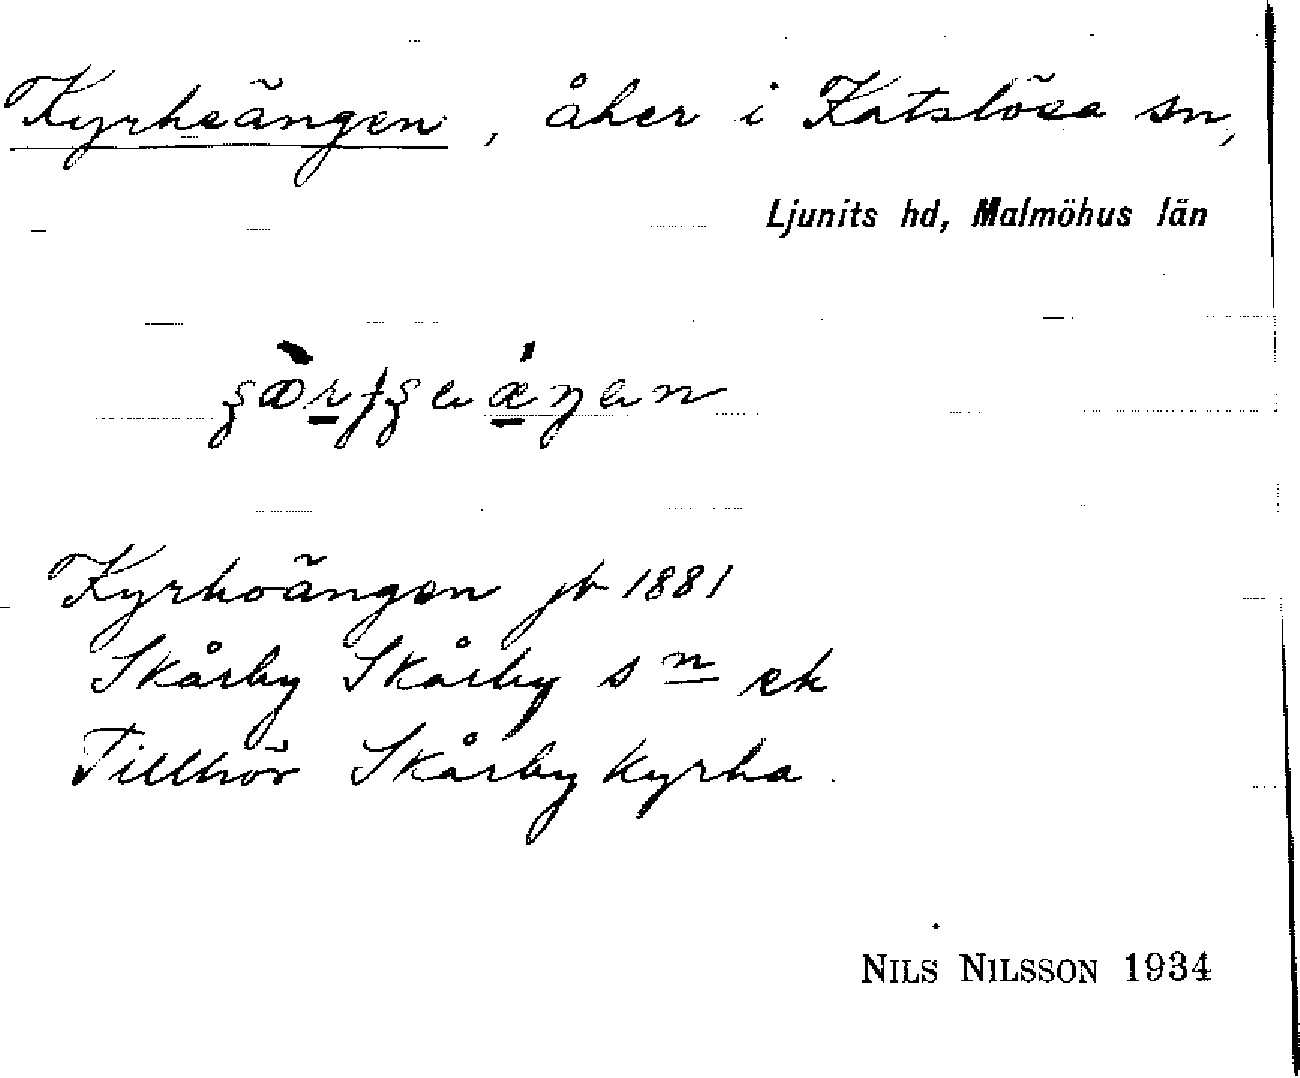 Kyrkeängen, åker i Katslösa sn,
Ljunits hd, Malmöhus län
Kyrkoängen jb 1881
Skårby Skårby sn ek
Tillhör Skårby kyrka.
NILS NILSSON 1934